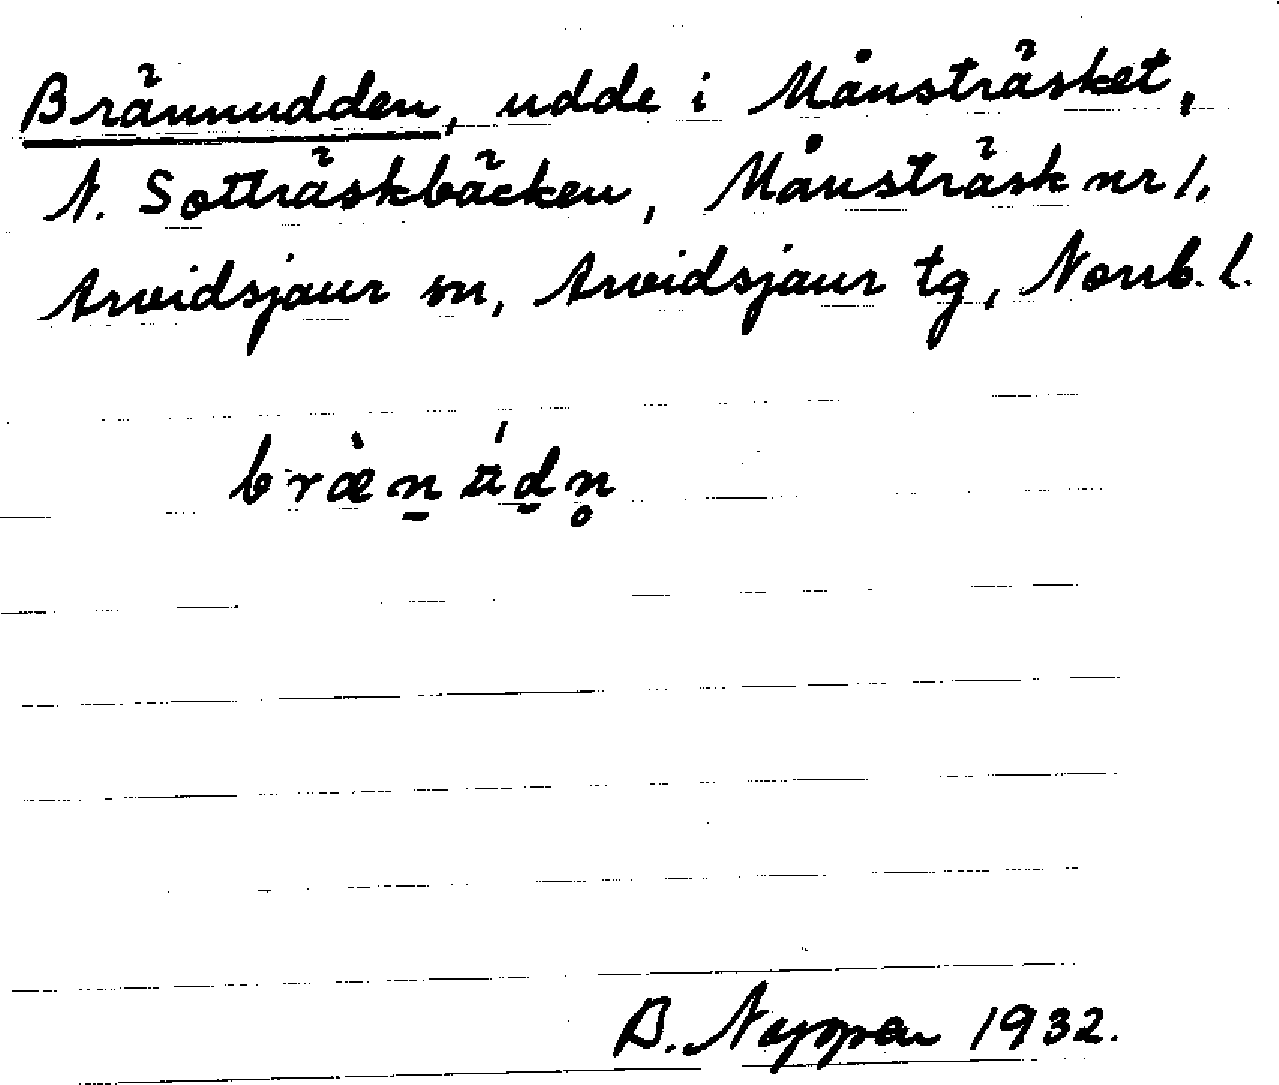 Brännudden, udde i Månsträsket,
N. Sotträskbäcken, Månsträsk nr 1,
Arvidsjaur sn, Arvidsjaur tg, Norrb. l.
B. 1932.